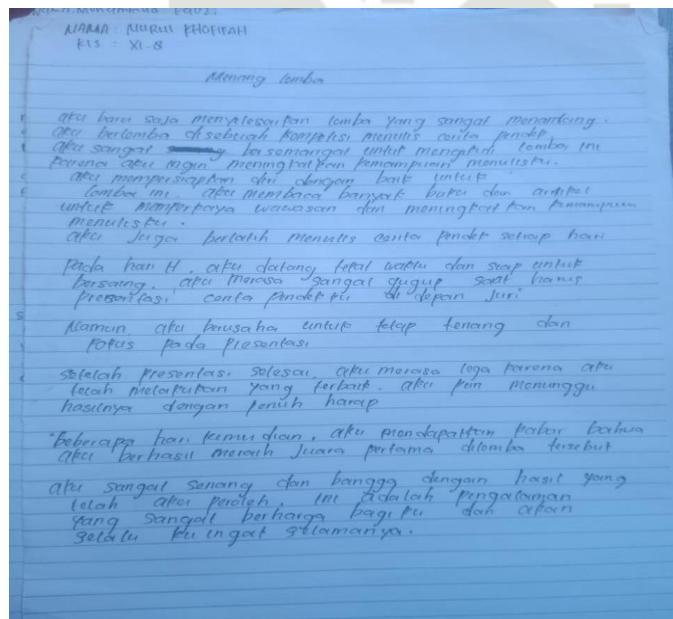 NAMA : NURUL KHOFIFAH
KLS : XI-8
Menang lomba
aku baru saja menyelesaikan lomba yang sangat menantang.
aku berlomba disebuah kompetisi menulis cerita pendek.
aku sangat bersemangat untuk mengikuti lomba ini
karena aku ingin meningkatkan kemampuan menulisku.
aku mempersiapkan diri dengan baik untuk
lomba ini. aku membaca banyak buku dan artikel
untuk memperkaya wawasan dan meningkatkan kemampuan
menulisku.
aku juga berlatih menulis cerita pendek setiap hari
Pada hari H, aku datang tepat waktu dan siap untuk
bersaing. aku merasa sangat gugup saat harus
presentasi cerita pendekku di depan juri
Namun, aku berusaha untuk tetap tenang dan
Fokus pada presentasi
setelah presentasi selesai, aku merasa lega karena aku
telah melakukan yang terbaik. aku pun menunggu
hasilnya dengan penuh harap
beberapa hari kemudian, aku mendapatkan kabar bahwa
aku berhasil meraih juara pertama dilomba tersebut
aku sangat senang dan bangga dengan hasil yang
telah aku peroleh. ini adalah pengalaman
yang sangat berharga bagiku dan akan
selalu ku ingat selamanya.